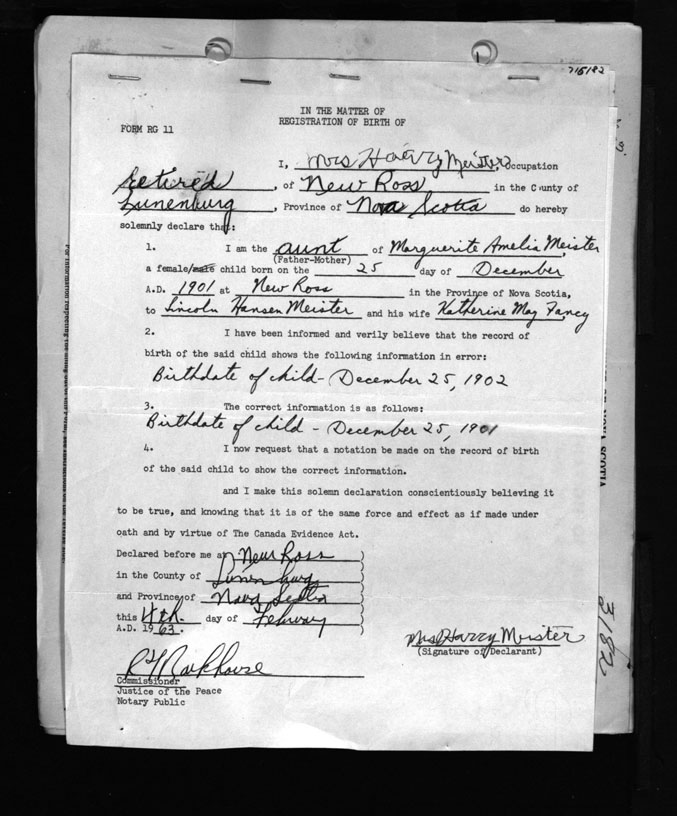 715182
IN THE MATTER OF
REGISTRATION OF BIRTH OF
FORM RG 11
I, Mrs Harry Meister, Occupation
Retired, of New Ross in the County of
Lunenburg, Province of Nova Scotia do hereby
solemnly declare that:
1. I am the aunt of Marguerite Amelia Meister,
(Father-Mother)
a female/male child born on the 25 day of December
A.D. 1901 at New Ross in the Province of Nova Scotia,
to Lincoln Hansen Meister and his wife Katherine May Fancy
2. I have been informed and verily believe that the record of
birth of the said child shows the following information in error:
Birthdate of child - December 25, 1902
3. The correct information is as follows:
Birthdate of child - December 25, 1901
4. I now request that a notation be made on the record of birth
of the said child to show the correct information.
and I make this solemn declaration conscientiously believing it
to be true, and knowing that it is of the same force and effect as if made under
oath and by virtue of The Canada Evidence Act.
Declared before me at New Ross )
in the County of Lunenburg )
and Province of Nova Scotia )
this 4th. day of February )
A.D. 1963. )
Mrs Harry Meister
(Signature of Declarant)
Commissioner
Justice of the Peace
Notary Public
NOVA SCOTIA
3182